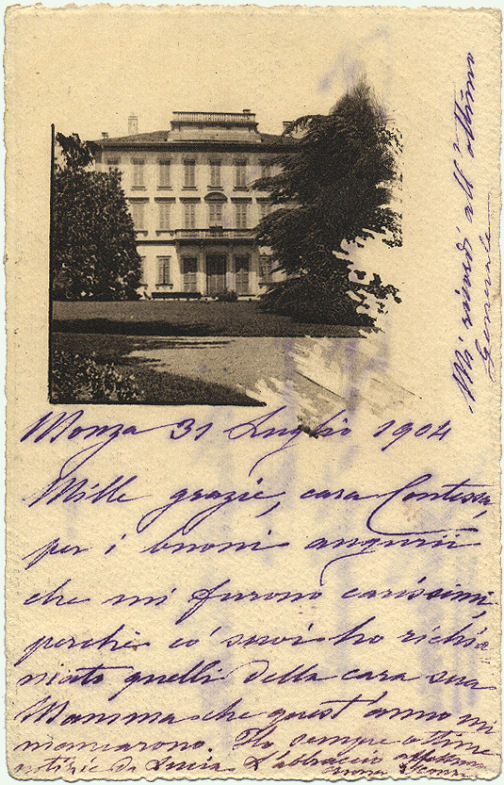 Monza 31 Luglio 1904
Mille grazie, cara Contessa,
per i buoni augurii
che mi furono carissimi,
perchè co' suoi ho richia
mato quelli della cara sua
Mamma che quest'anno mi
mancarono. Ho sempre ottime
notizie da Lucia. L'abbraccio
Mi ricordi all'ottimo
Generale